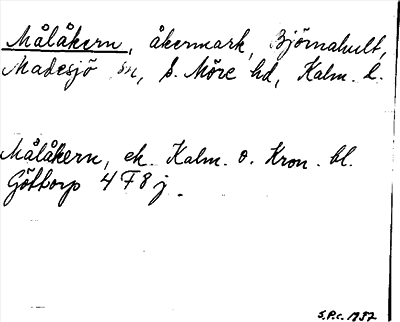 Målåkern, åkermark, Björnahult,
Madesjö sn, S. Möre hd, Kalm. l.
Målåkern, ek. Kalm. o. Kron. bl.
Göttorp 4 F 8 j.
S.P.c. 1937